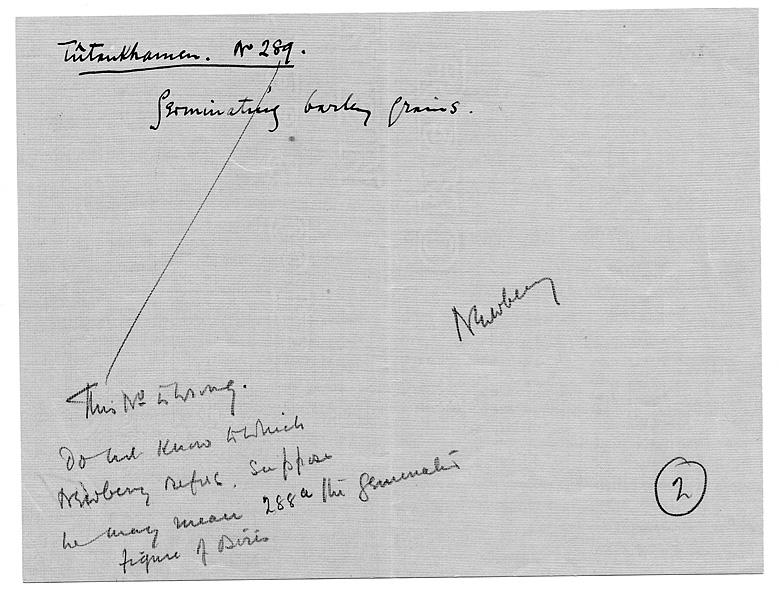 Tûtankhamen. No 289.
Germinating barley grains.
Newberry
This No is wrong.
Do not know to which
Newberry refers. Suppose
he may mean 288a the germinated
figure of Osiris
2